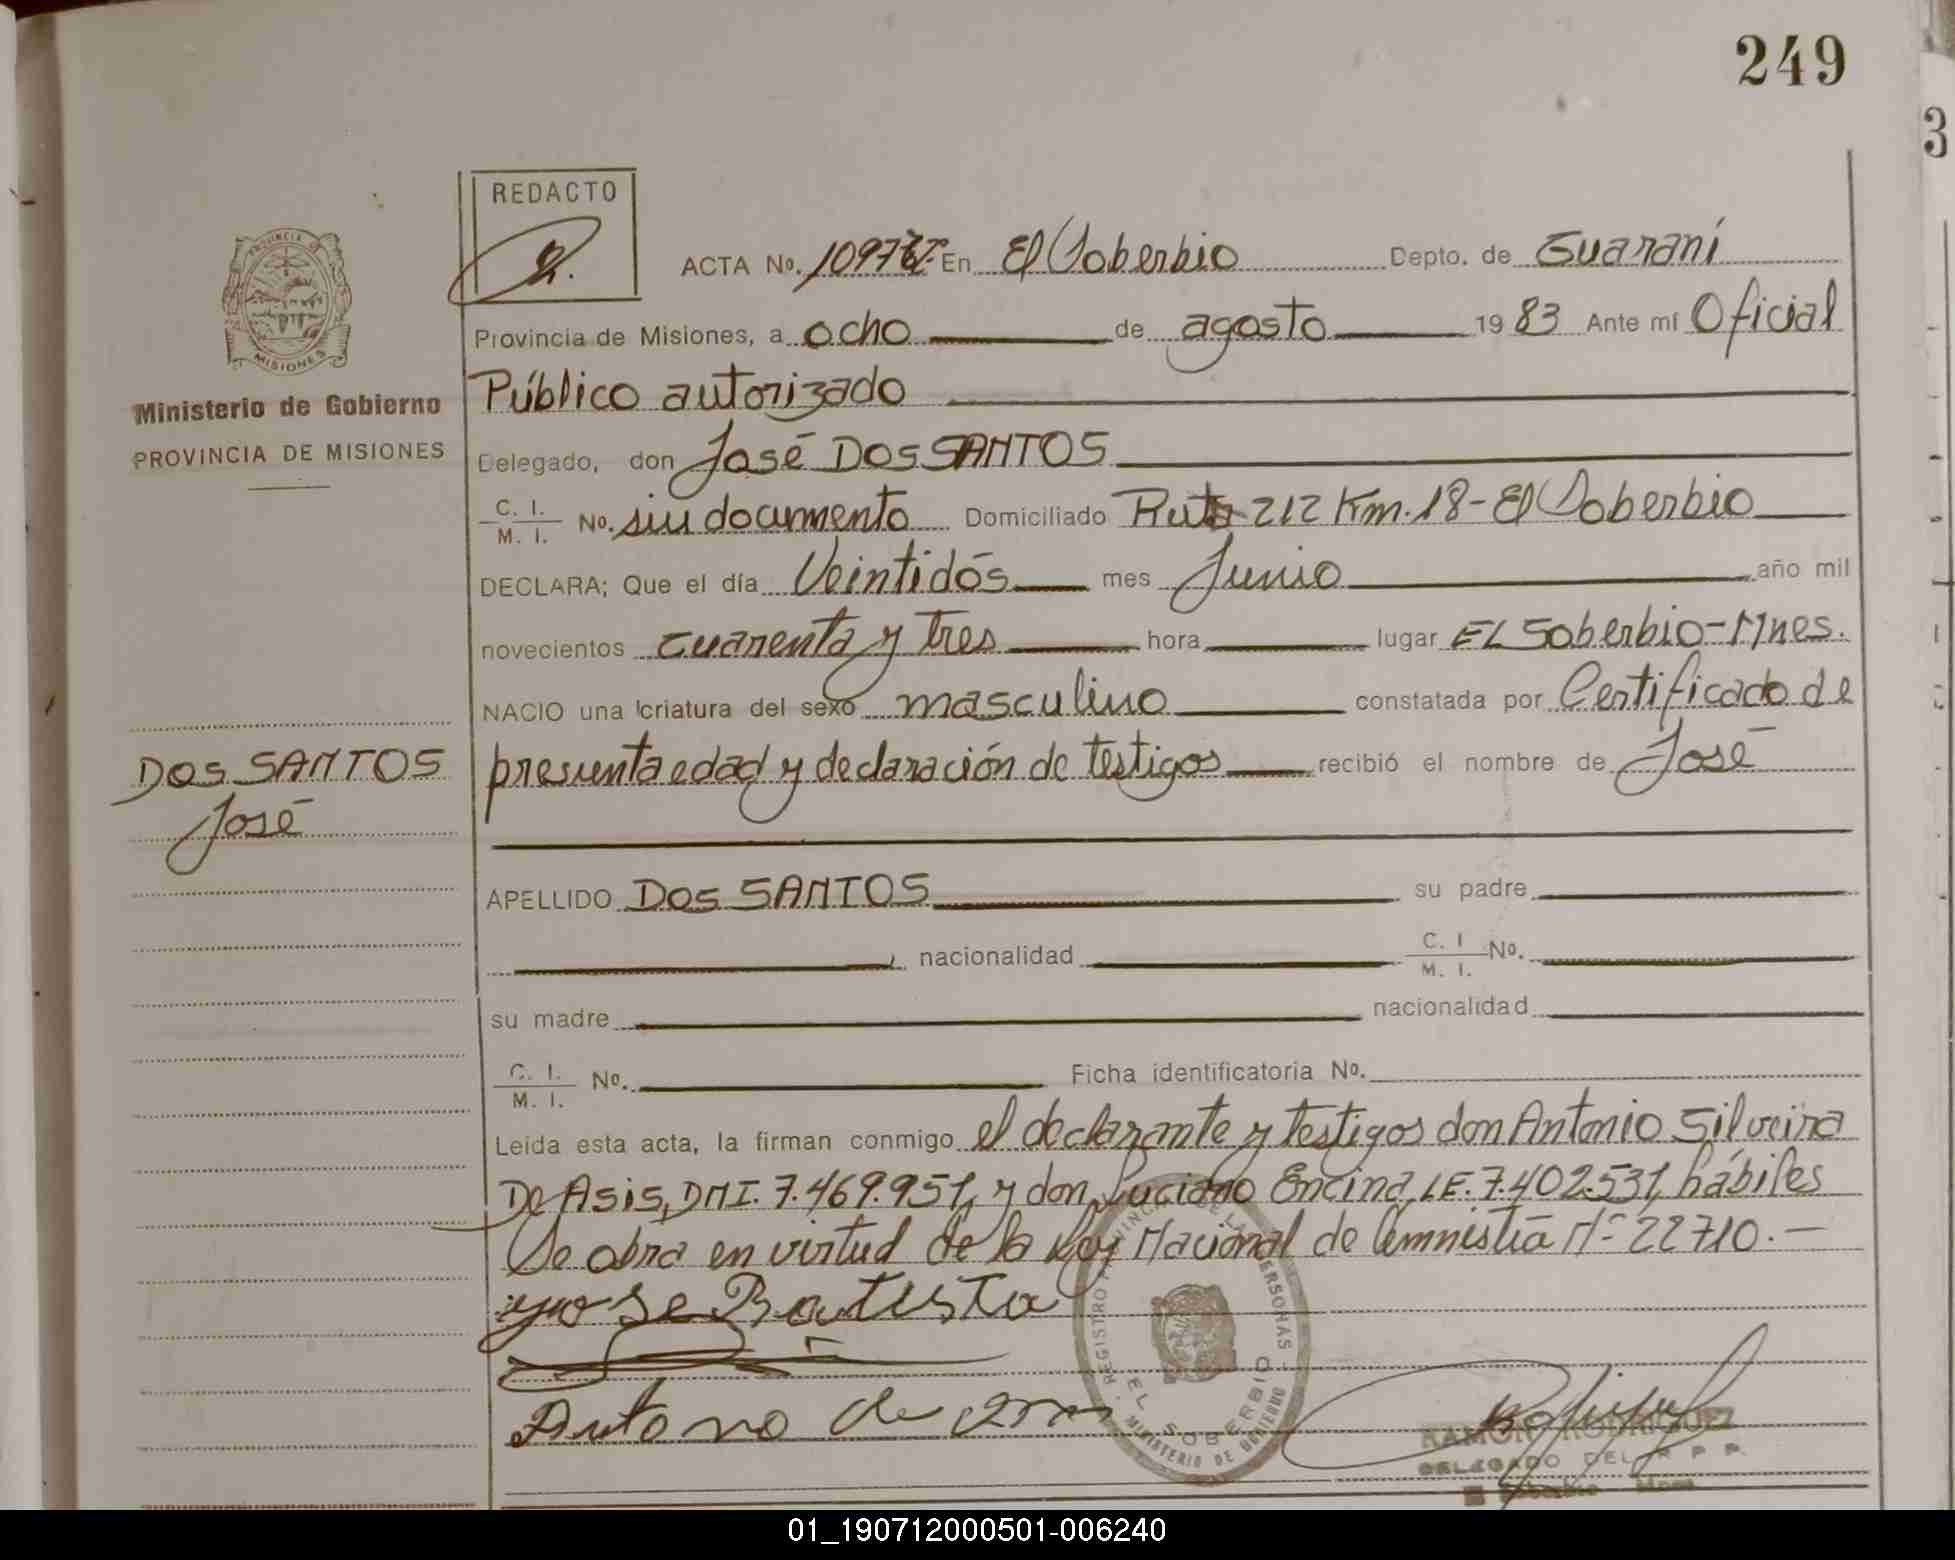 249
3
REDACTO
PROVINCIA DE
MISIONES
Ministerio de Gobierno
PROVINCIA DE MISIONES
ACTA No. En El Soberbio Depto. de Guaraní
Provincia de Misiones, a ocho de agosto 1983 Ante mí Oficial
Público autorizado
Delegado, don José DOS SANTOS
C. I.
M. I. No. sin documento Domiciliado Ruta 212 Km. 18 - El Soberbio
DECLARA; Que el día Veintidós mes Junio año mil
novecientos cuarenta y tres hora lugar EL Soberbio - Mnes.
NACIO una criatura del sexo masculino constatada por Certificado de
DOS SANTOS
José
presunta edad y declaración de testigos recibió el nombre de José
APELLIDO DOS SANTOS su padre
nacionalidad C. I M. I. No.
su madre nacionalidad
C. I. M. I. No. Ficha identificatoria No.
Leída esta acta, la firman conmigo el declarante y testigos don Antonio Silveira
De Asis, DNI. 7.469.951, y don Luciano Encina, LE. 7.402.531, hábiles
Se obra en virtud de la Ley Nacional de Amnistía Nº 22710. —
REGISTRO PROVINCIAL DE LAS PERSONAS
EL SOBERBIO
MINISTERIO DE GOBIERNO
RAMON RODRIGUEZ
DELEGADO DEL R P P.
01_190712000501-006240